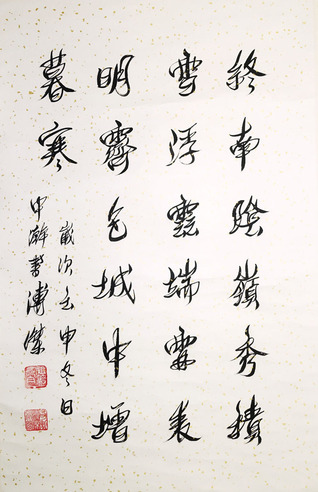 終南陰嶺秀積
雪浮雲端霖表
明霽色城中增
暮寒
歲次壬申冬日
書溥傑